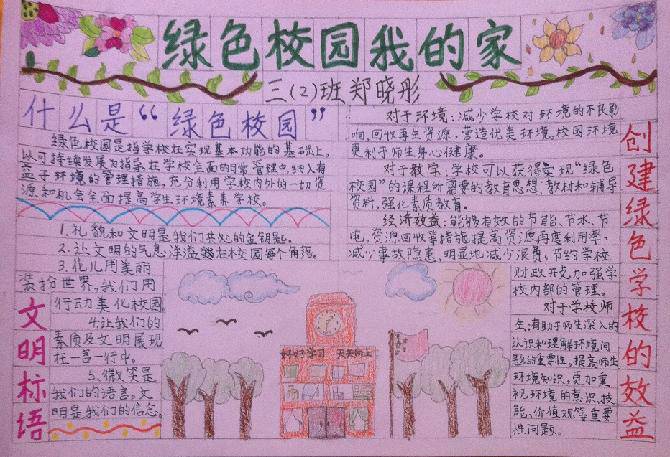 绿色校园我的家
三(2)班郑晓彤
什么是“绿色校园”
绿色校园是指学校在实现基本功能的基础上,
以可持续发展为指导,在学校全面的日常管理中纳入有
益于环境的管理措施,充分利用学校内外的一切资
源和机会全面提高学生环境素养学校。
1.礼貌和文明是我们共处的金钥匙。
2.让文明的气息
校园每个角落。
3.花儿用美丽
装扮世界,我们用
行动美化校园
4.让我们的
素质及文明展现
在一言一行中。
5、微笑是
我们的语言,文
明是我们的信念。
文明标语
好好学习 天天向上
对于环境:减少学校对环境的不良影
响,回收再生资源,营造优美环境,校园环境
更利于师生身心健康。
对于教学,学校可以获得实现“绿色
校园”的课程所需要的教育思想、教材和辅导
资料,强化素质教育。
经济效益:能够有效的节能、节水、节
电,资源回收等措施,提高资源再度利用率,
减少事故隐患,明显地减少浪费,节约学校
财政开支,加强学
校内部的管理。
对于学校师
生:有助于师生深入的
认识和理解环境问
题的重要性,提高师生
环境知识,更加重
视环境的意识、技
能、价值观等重要
性问题。
创建绿色学校的效益